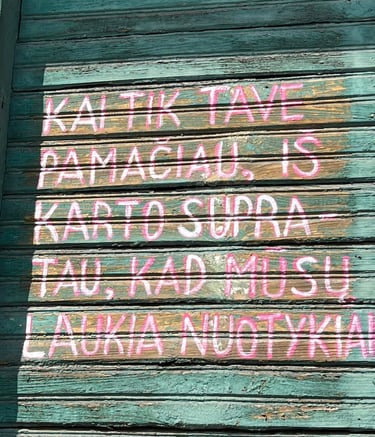 KAI TIK TAVE
PAMAČIAU, IŠ
KARTO SUPRA-
TAU, KAD MŪSŲ
LAUKIA NUOTYKIAI